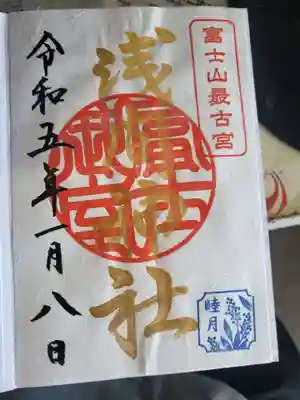 富士山最古宮
浅間神社
冨士
御室
令和五年一月八日
睦月